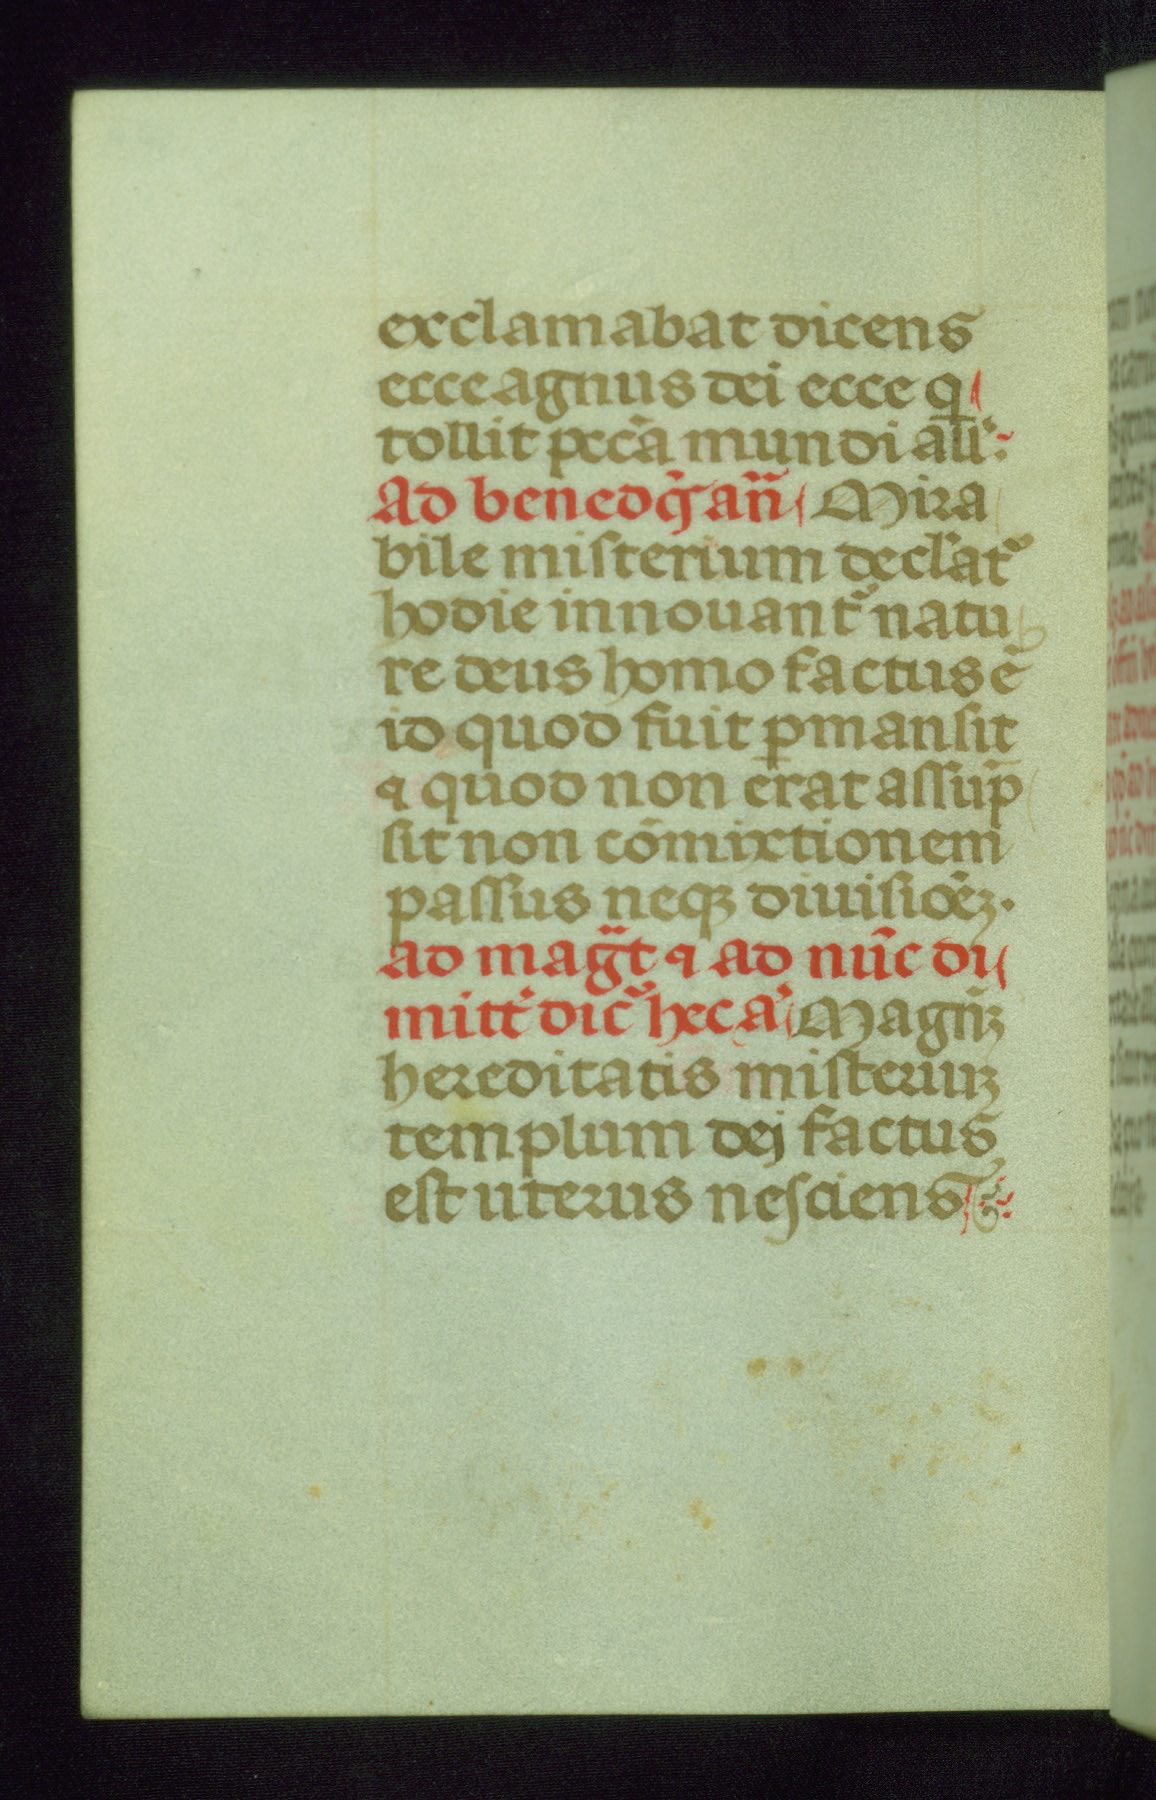 exclamabat dicens
ecce agnus dei ecce q̇
tollit pecc̄a mundi all̄
Ad bened̄q̄ an̄ Mira
bile misterium declarat᷑
hodie innouant᷑ natu
re deus homo factus ē
id quod fuit ꝑmansit
⁊ quod non erat assūp
sit non cōmixtionem
passus neqꝫ diuisiōeꝫ.
ad mag̃t ⁊ ad nūc di
mitt᷑ dic᷑ hec a᷑ Magnꝫ
hereditatis misteriuꝫ
templum dej factus
est uterus nesciens